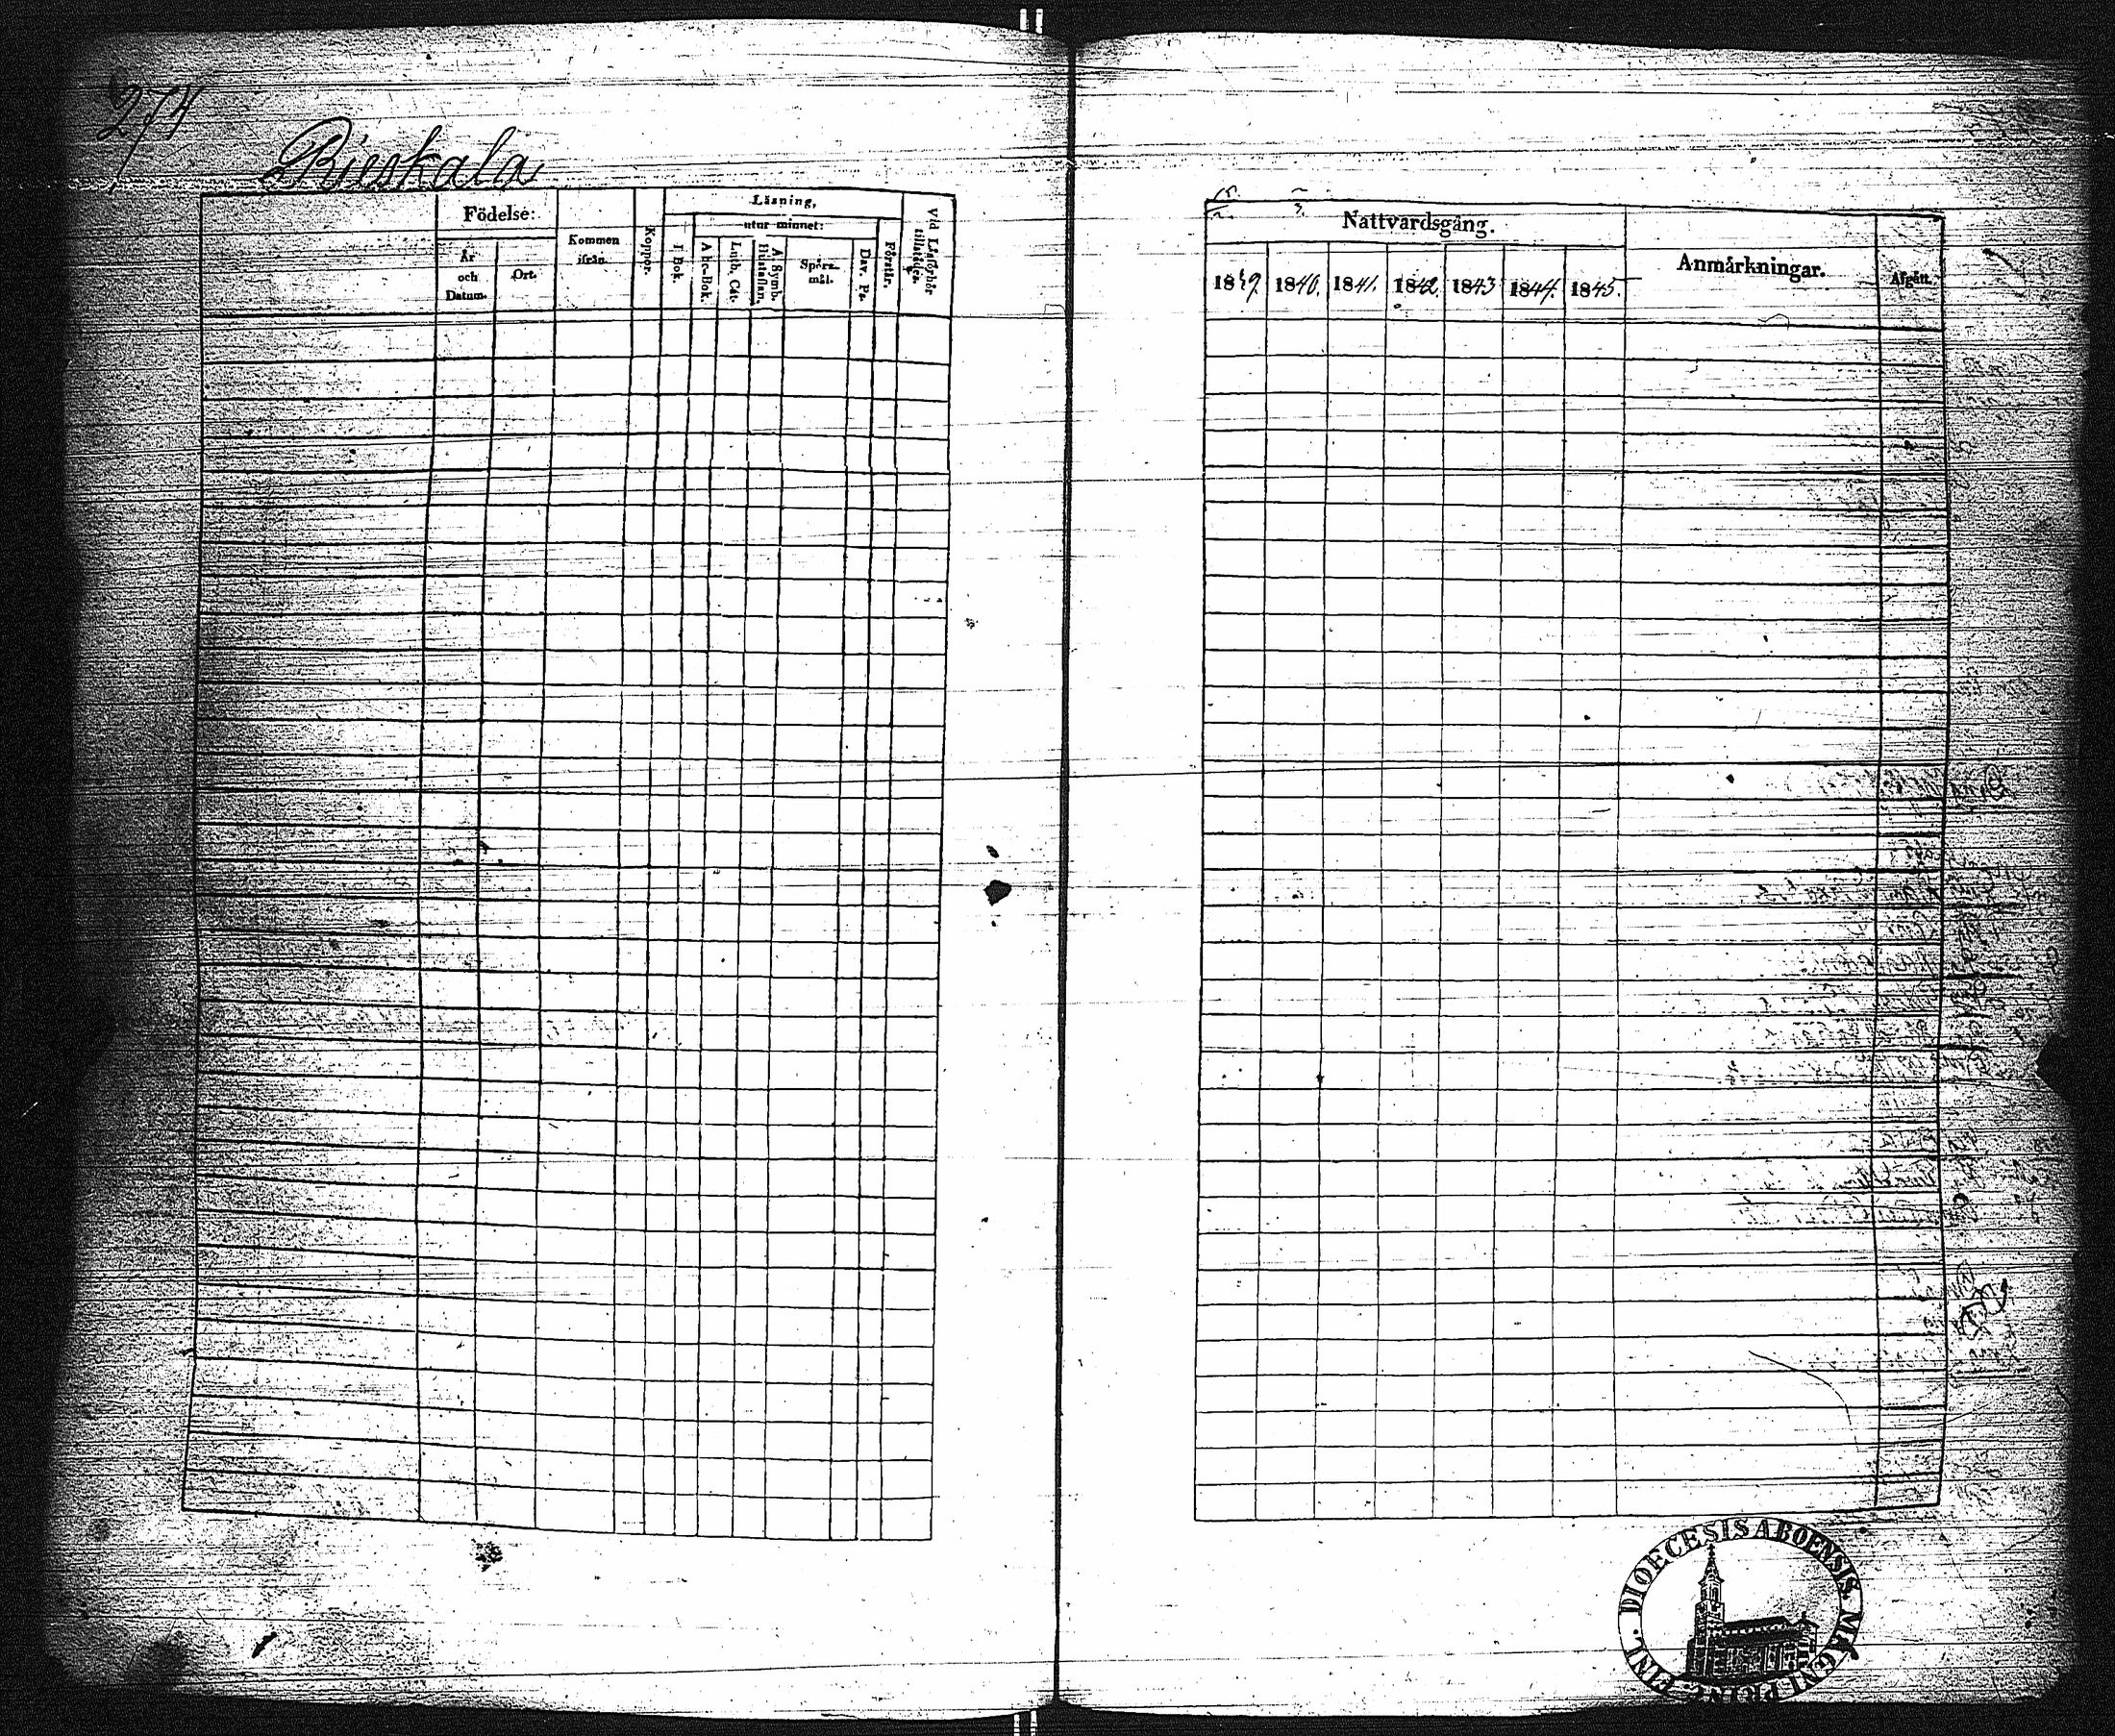 274
Rieskala
Födelse:
År och Datum.
Ort.
Kommen ifrån.
Koppor.
Läsning,
utur minnet:
I Bok.
A bc-Bok.
Luth. Cat.
A. Symb. Hustaflan.
Spörsmål.
Dav. Ps.
Förstår.
Vid Läsförhör tillstädes.
Nattvardsgång.
1839. 1840. 1841. 1842. 1843 1844. 1845.
Anmärkningar.
Afgått.
DIOECESIS ABOENSIS MAGNI PRINC. FINL.